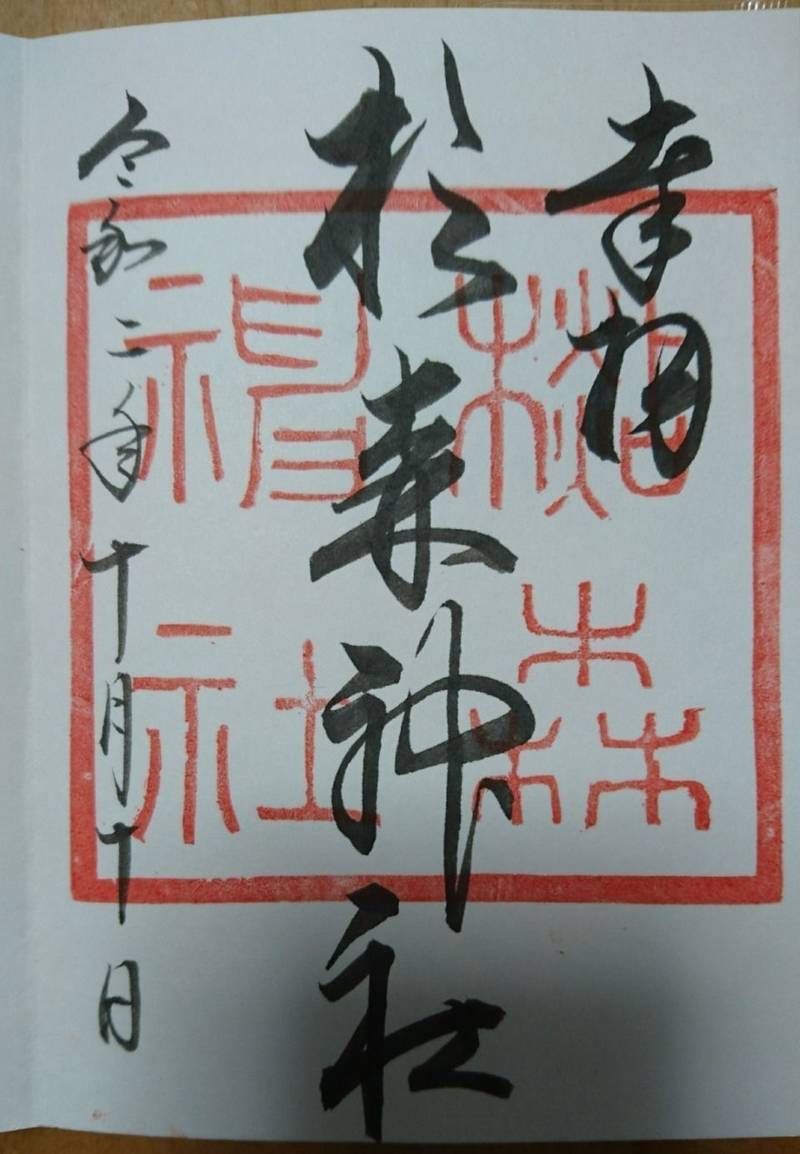 奉拝
松森神社
令和二年十月十日
松森神社